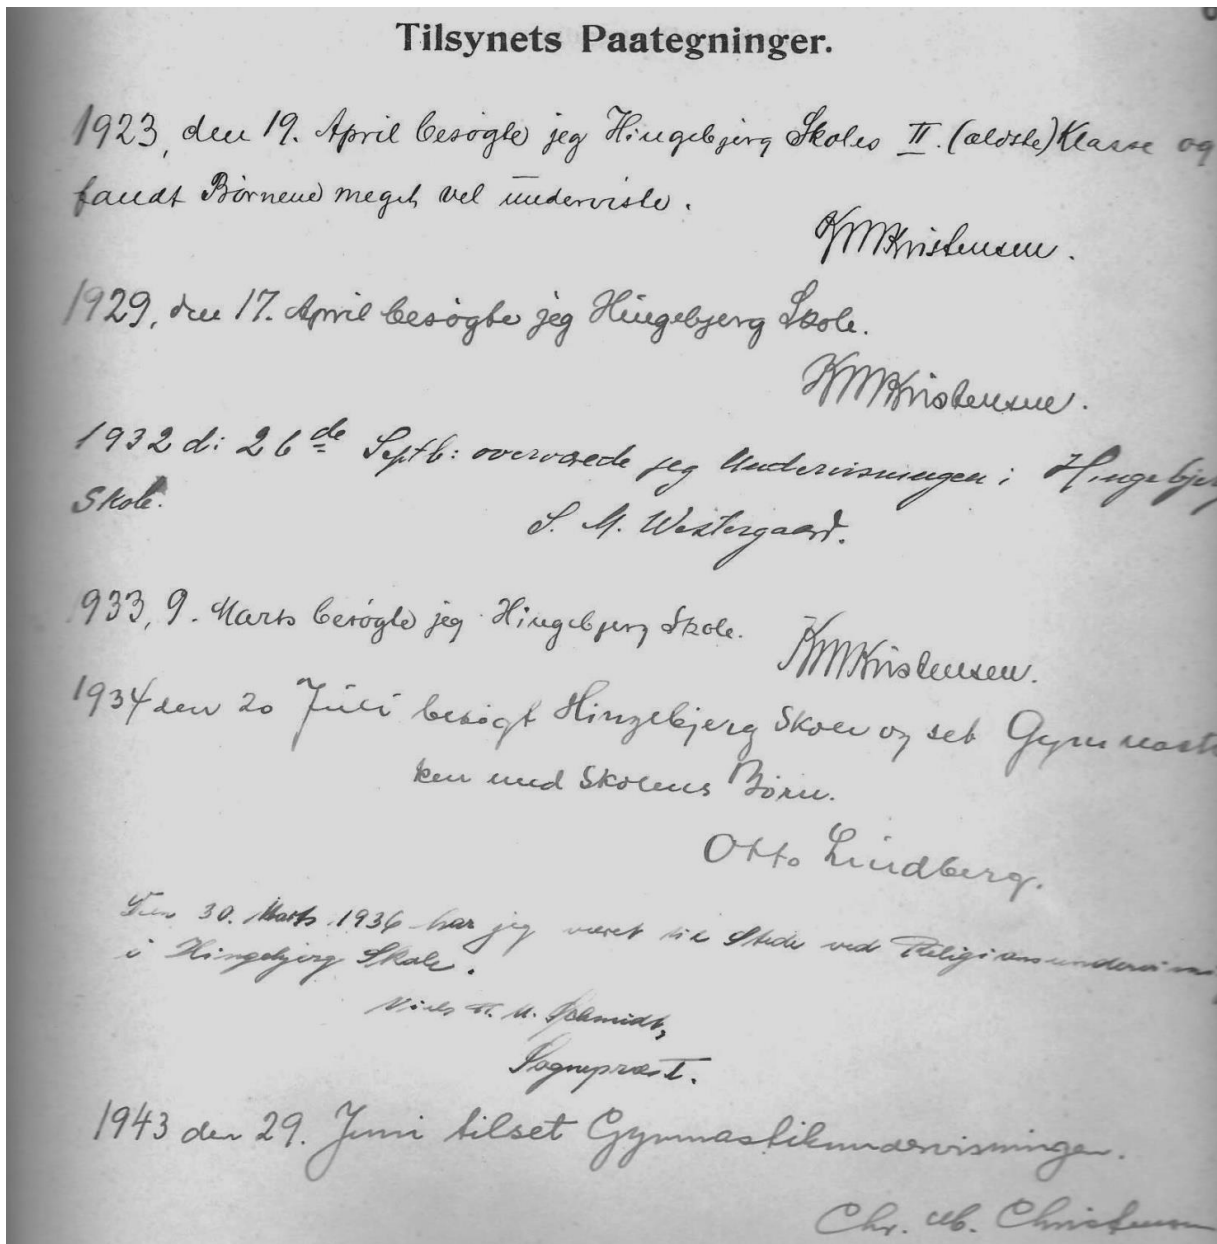 Tilsynets Paategninger.
1923, den 19. April besøgte jeg Hingebjerg Skoles II. (ældste) Klasse og
fandt Børnene meget vel underviste.
KMKristensen.
1929, den 17. April besøgte jeg Hingebjerg Skole.
KMKristensen.
1932 d: 26de Septb: overværede jeg Undervisningen i Hingebjerg
Skole.
S. M. Westergaard.
933, 9. Marts besøgte jeg Hingebjerg Skole.
KMKristensen.
1934 den 20 Juli besøgt Hingebjerg Skole og set Gymnasti
ken med Skolens Børn.
Otto Lindberg.
Den 30. Marts 1936 har jeg været til Stede ved Religionsundervisn
i Hingebjerg Skole.
Niels M. Schmidt,
Sognepræst.
1943 den 29. Juni tilset Gymnastikundervisningen.
Chr. Christensen